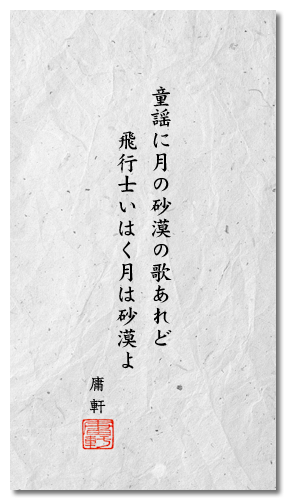 童謡に月の砂漠の歌あれど
飛行士いはく月は砂漠よ
庸軒
庸軒